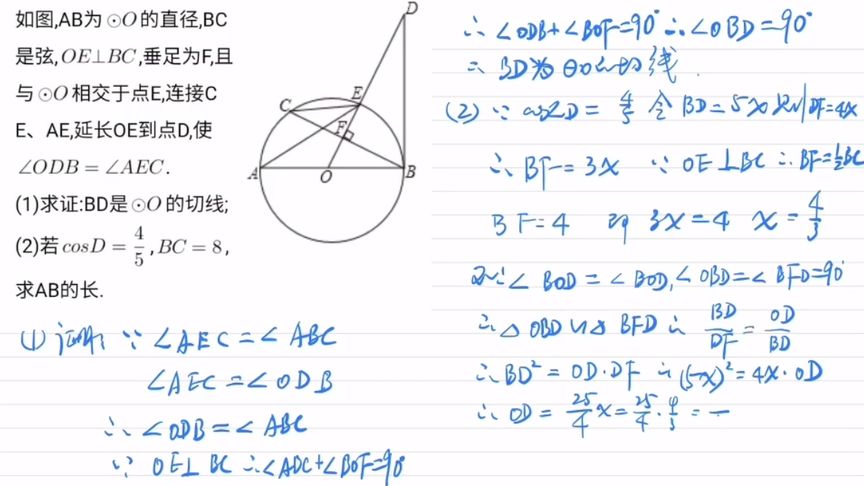 如图,AB为⊙O的直径,BC
是弦,OE⊥BC,垂足为F,且
与⊙O相交于点E,连接C
E、AE,延长OE到点D,使
∠ODB=∠AEC.
(1)求证:BD是⊙O的切线;
(2)若cosD=4/5,BC=8,
求AB的长.
D
E
C
F
A
O
B
(1) 证明: ∵ ∠AEC=∠ABC
∠AEC=∠ODB
∴ ∠ODB=∠ABC
∵ OE⊥BC ∴∠ABC+∠BOF=90°
∴ ∠ODB+∠BOF=90° ∴∠OBD=90°
∴ BD为⊙O的切线.
(2) ∵ cos∠D=4/5 令BD=5x 则DF=4x
∴ BF=3x ∵ OE⊥BC ∴BF=1/2BC
BF=4 即 3x=4 x=4/3
又∵∠BOD=∠BOD,∠OBD=∠BFD=90°
∴△OBD∽△BFD ∴ BD/DF=OD/BD
∴BD²=OD·DF ∴(5x)²=4x·OD
∴ OD=25/4x=25/4·4/3=一